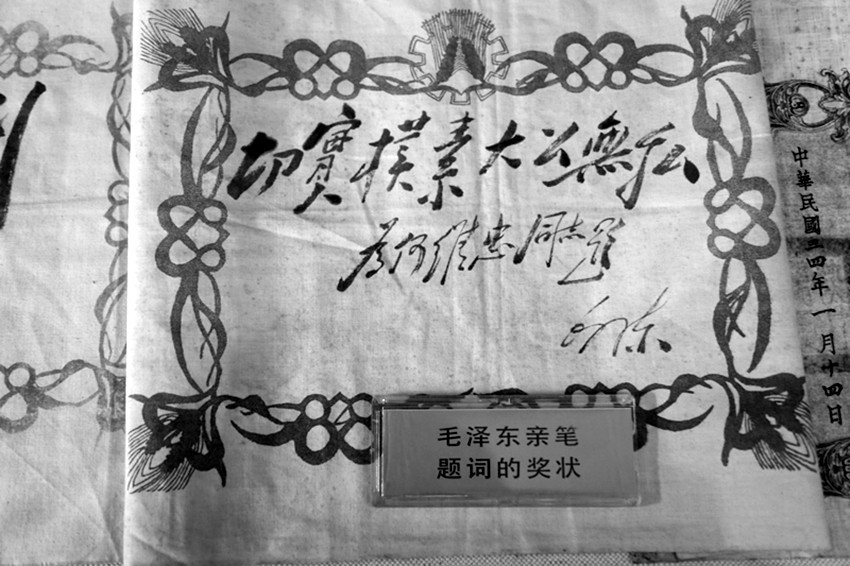 切實樸素大公無私
為何維忠同志題
毛泽东
中華民國三四年一月十四日
毛泽东亲笔
题词的奖状